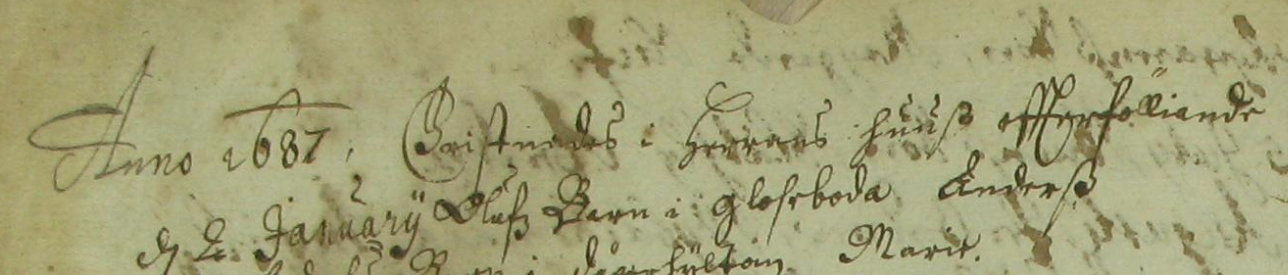 Anno 1687, Cristnades i Herrans huuß effterfölliande
d 2 Januarij Olufz Barn i gloseboda Anderß
Barn i Marit.